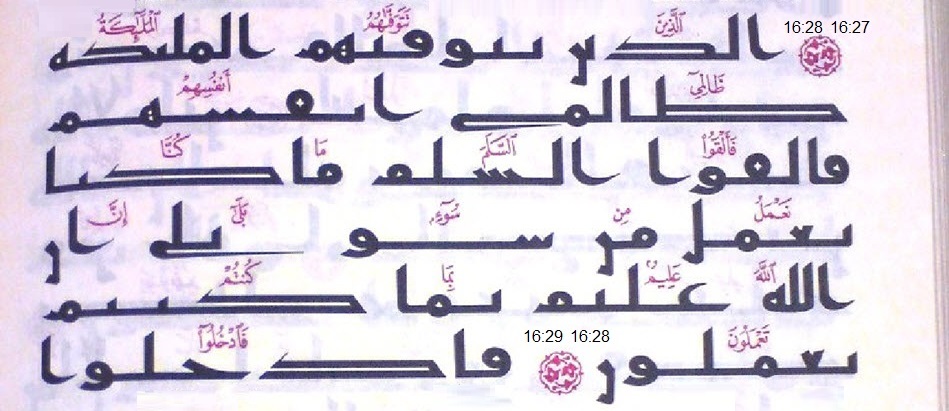 16:28 16:27
ٱلَّذِينَ تَتَوَفَّىٰهُمُ ٱلْمَلَٰٓئِكَةُ
الذين تتوفيهم الملئكة
ظَالِمِىٓ أَنفُسِهِمْ
ظالمى انفسهم
فَأَلْقَوُا۟ ٱلسَّلَمَ مَا كُنَّا
فالقوا السلم ما كنا
نَعْمَلُ مِن سُوٓءٍۭ بَلَىٰٓ إِنَّ
نعمل من سو بلى ان
ٱللَّهَ عَلِيمٌۢ بِمَا كُنتُمْ
الله عليم بما كنتم
تَعْمَلُونَ فَٱدْخُلُوٓا۟
تعملون 16:29 16:28 فادخلوا